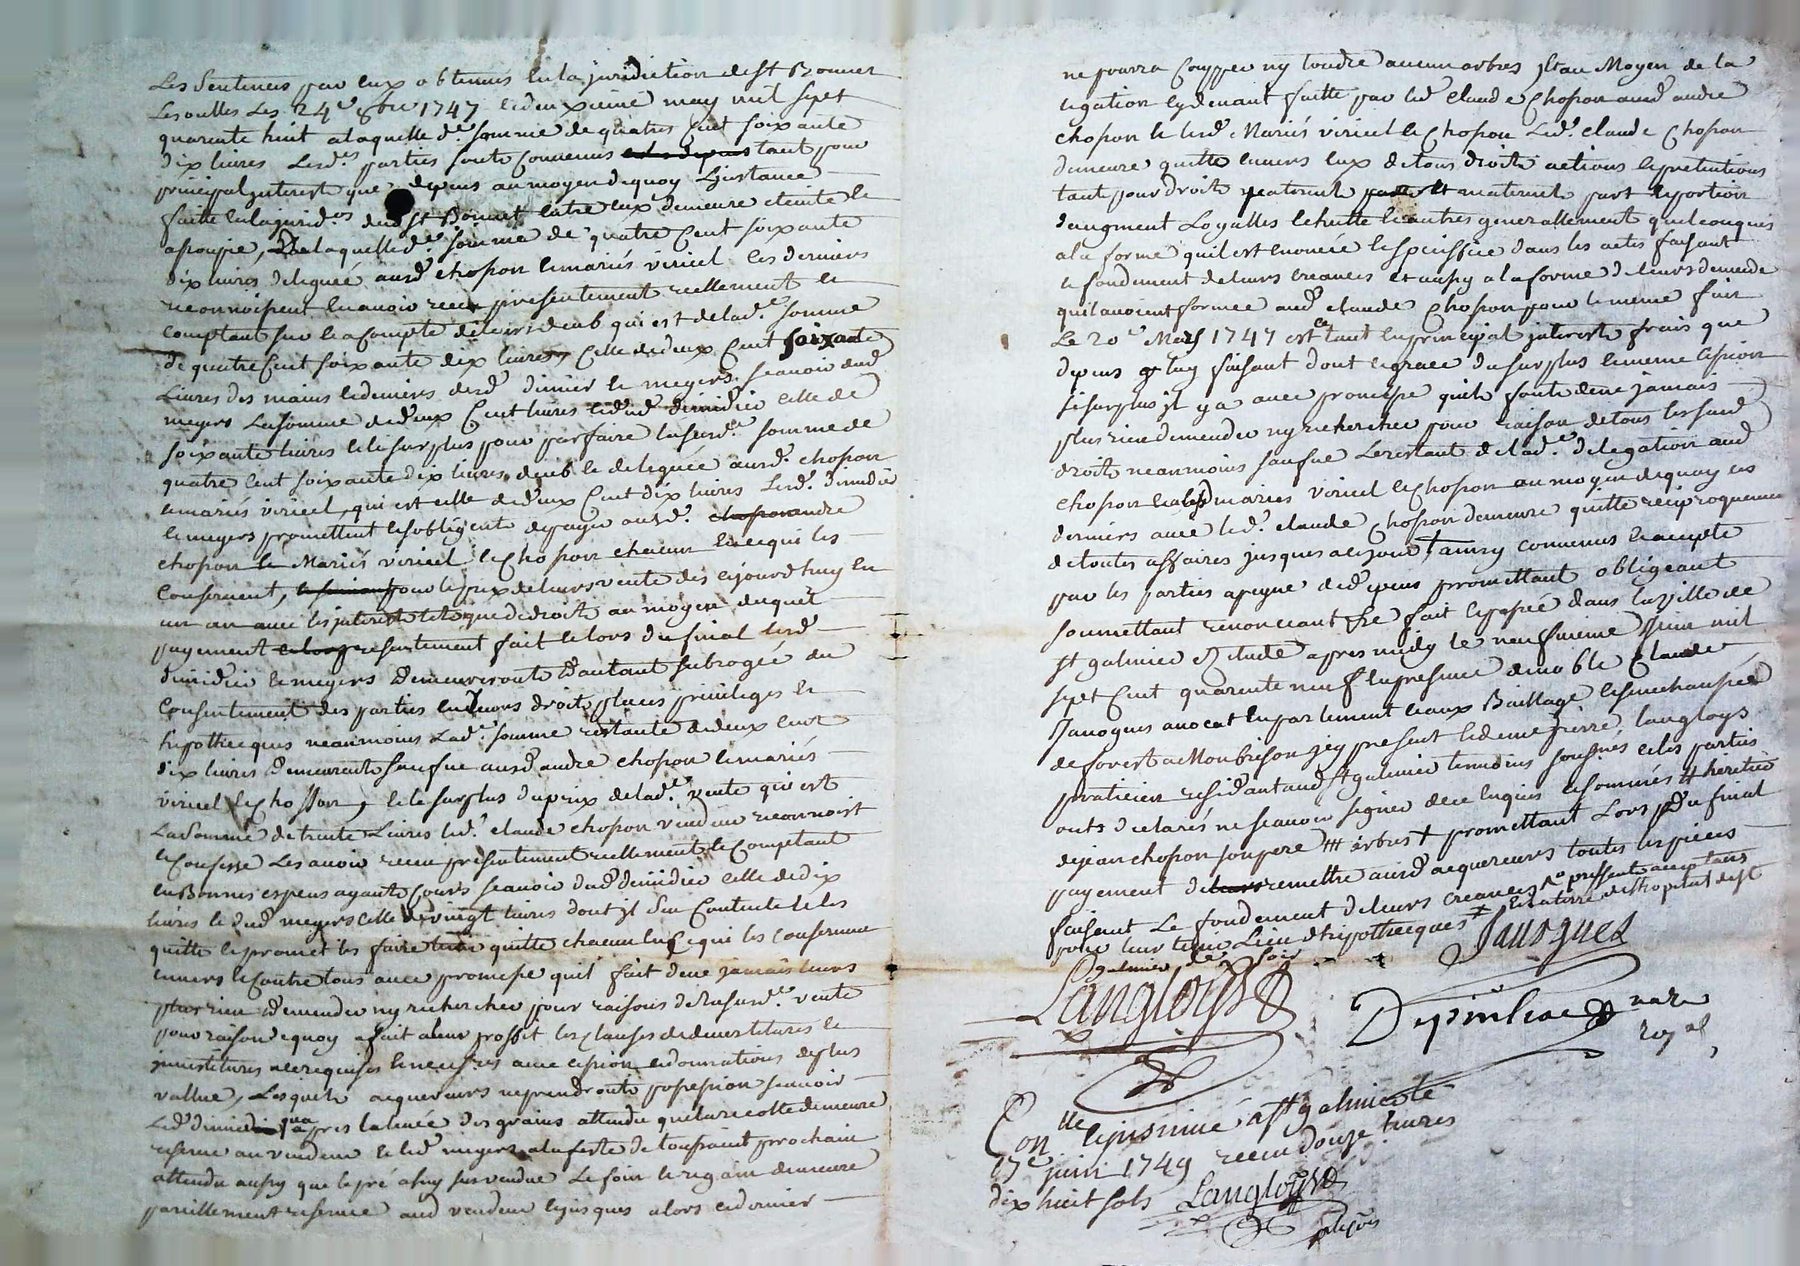 Les Sentences par eux obtenues en la juridiction de st Bonnet
Les oulles Les 24e 8bre 1747 et deuxieme may mil sept
quarente huit a laquelle de somme de quatres Cent soixante
dix livres Lesdes parties sonts Convenus tant pour
principal interest que depens au moyen de quoy L'jnstance
faitte en la jurid.on dud st Bonnet entre eux demeure eteinte et
asoupie, De laquelle de somme de quatre Cent soixante
dix livres deleguée ausd chopon et mariés viricel les derniers
reconnoissent en avoir receu presentement reellement et
Comptant sur et a Compte de leurs deub qui est de lad.e somme
de quatre Cent soixante dix livres, Celle de deux Cent soixante
Livres des mains et deniers desd dimier et meyers, scavoir dud
meyers La somme de deux Cent livres et dud dimidier celle de
soixante livres et le surplus pour parfaire la susd.e somme de
quatre Cent soixante dix livres, deub et deleguée ausd. chopon
et mariés viricel, qui est celle de deux Cent dix livres Lesd. dimidier
et meyers promettent et s'obligent de payer ausd. andre
chopon et Mariés viricel et chopon chacun en ce qui les
Conservent, pour le prix de leurs vente dès cejourd'huy en
un an avec les jnterest tels que de droit au moyen duquel
payement presentement fait et lors du final lesd
dimidier et meyers Demeureronts D'autant subrogée du
Consentement des parties en leurs droits places privileges et
hipotheeques neanmoins Lad.e somme restante de deux cent
dix livres Demeurents sauf ue ausd andre chopon et mariés
viricel et Chopon, et le surplus du prix de lad.e vente qui est
La somme de trente Livres led. claude chopon vendeur reconnoit
et Confesse Les avoir receu presentement reellement et Comptant
en Bonnes especes ayants Cours scavoir dud dimidier celle de dix
livres et dud meyers celle de vingt livres dont jl s'en Contente et les
quitte et promet les faire tenir quitte chacun en ce qui les Conserne
envers et Contre tous avec promesse qu'il fait de ne jamais leurs
rien Demender ny rechercher pour raisons de la susd.e vente
pour raison de quoy a fait a leur proffit les clauses de demestitures et
jnvestitures a ce requises et necess.res avec cession et donnations de plus
vallue, Lesquels acquereurs reprendronts possession scavoir
Led dimidier apres la levée des grains attendu que la recolte demeure
reservé au vendeur et led. meyers a la feste de toussaint prochain
attendu aussy que le pré a luy sus vendue Le foin et regain demeure
pareillement reservée aud vendeur et jusques alors ce dernier
ne pourra Coupper ny tondre aucun arbres jl au Moyen de la
egation cy devant faitte par led. claude Chopon ausd andre
chopon et lesd. Mariés viricel et Chopon Led. claude Chopon
demeure quitte envers eux de tous droits actions et pretentions
tant pour droits paternel maternel part et portion
d'augment Loyalles et autres generallement quelconques
a la forme qu'il est enoncé et specifiée dans les actes faisant
le fondement de leurs creances et aussy a la forme de leurs demende
qu'il avoient formée aud. claude Chopon pour le meme fait
Le 20e Mars 1747 est ce tant en principal jnterests frais que
depens luy faisant dont et grace du surplus et meme Cession
si surplus jl y a avec promesse qu'ils fonts de ne jamais
plus rien demender ny rechercher pour raison de tous les susd
droits neanmoins sauf ue Le restant de lad.e delegation aud
chopon et mariés viricel et Chopon au moyen de quoy ces
derniers avec led. claude Chopon demeure quitte reciproquement
de toutes affaires jusques a ce jour, l'ainsy convenus et accepté
par les parties a peyne de depens promettant obligeant
soumettant renonceant &c fait et passée dans la ville de
st galmier Etude apres midy le neufvieme juin mil
sept Cent quarente neuf en presence de noble claude
Janoques avocat en parlement et aux Baillage et senechaussée
de forest a Montbrison jcy present led me pierre langloys
praticien residant aud st galmier temoins sous.nés et les parties
onts declarés ne scavoir signer de ce enquis et sommés # heretier
de jean chopon son pere ## arbres + promettant Lors du final
payement remettre ausd acquereurs toutes les pieces
faisant Le fondement de leurs creances
pour leur tenir Lieu d'hipotheeques
galmier ce soir
Janoques
Langloys
nore
royal,
Con.lle et jnsinué a st galmier le
17e juin 1749 receu douze livres
dix huit sols Langloys